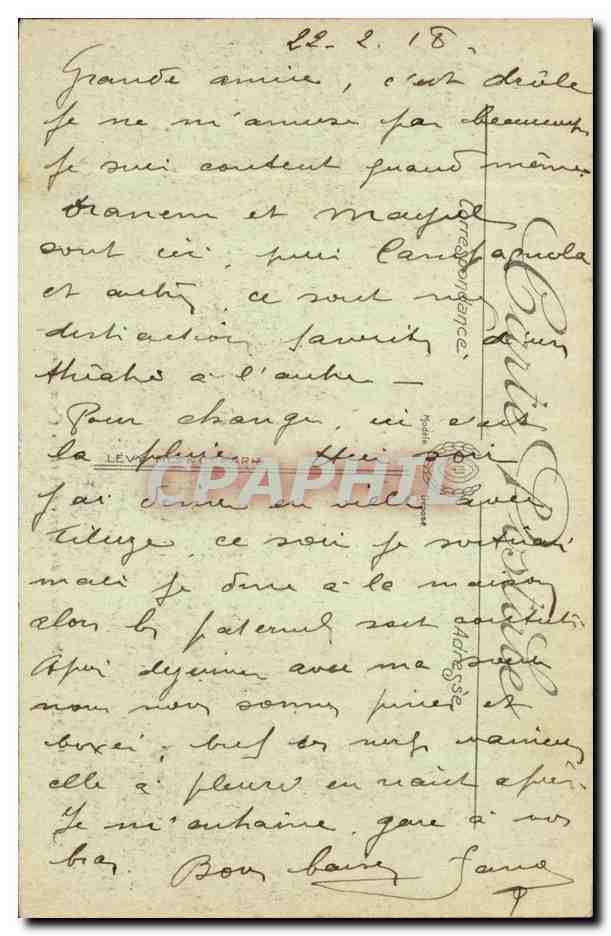 22-2.18.
Grande amie, c'est drôle
Je ne m'amuse pas beaucoup
Je suis content quand même.
Dranem et Mayol
sont ici, puis Campagnola
et autres, ce sont mes
distractions favorites d'un
théâtre à l'autre —
Pour changer, ici c'est
la pluie Hier soir
J'ai diné en ville avec
ce soir je sortirai
mais je dine à la maison
alors les paternels sont contents
Après déjeuner avec ma soeur
nous nous sommes prises et
boxés, bref les nerfs vaincus
elle a pleuré en riait après.
Je m'entraine, gare à vos
bras. Bons baisers
Carte Postale
Correspondance
Adresse
Modèle
Déposé
LEV
PH
CPAPHIL